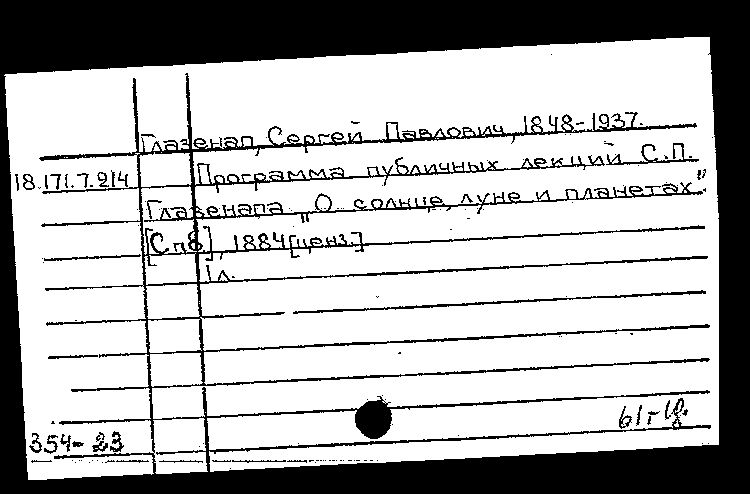 Глазенап, Сергей Павлович, 1848-1937.
18.171.7.214 Программа публичных лекций С.П.
Глазенапа „О солнце, луне и планетах".
[Спб], 1884 [ценз.]
1 л.
354-23